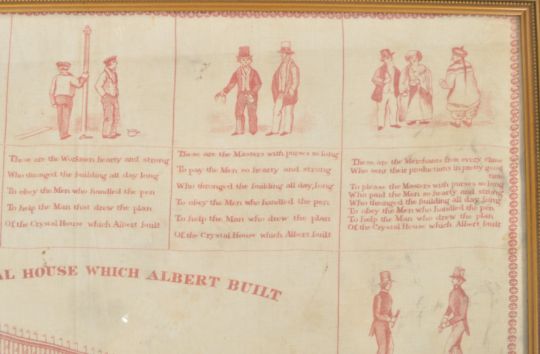 These are the Workmen hearty and strong
Who thronged the building all day long
To obey the Men who handled the pen
To help the Man that drew the plan
Of the Crystal House which Albert built
These are the Masters with purses so long
To pay the Men so hearty and strong
Who thronged the building all day long
To obey the Men who handled the pen
To help the Man who drew the plan
Of the Crystal House which Albert built
These are the Merchants from every clime
Who sent their productions in pretty good
time
To please the Masters with purses so long
Who paid the Men so hearty and strong
Who thronged the building all day long
To obey the Men who handled the pen
To help the Man who drew the plan
Of the Crystal House which Albert built
AL HOUSE WHICH ALBERT BUILT